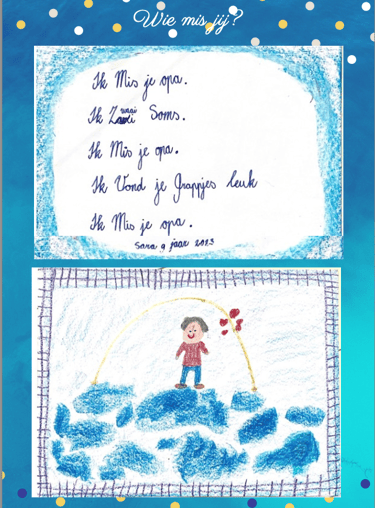 Wie mis jij?
Ik Mis je opa.
Ik Zwaai Soms.
Ik Mis je opa.
Ik Vond je Grapjes leuk
Ik Mis je opa.
Sara 9 jaar 2023